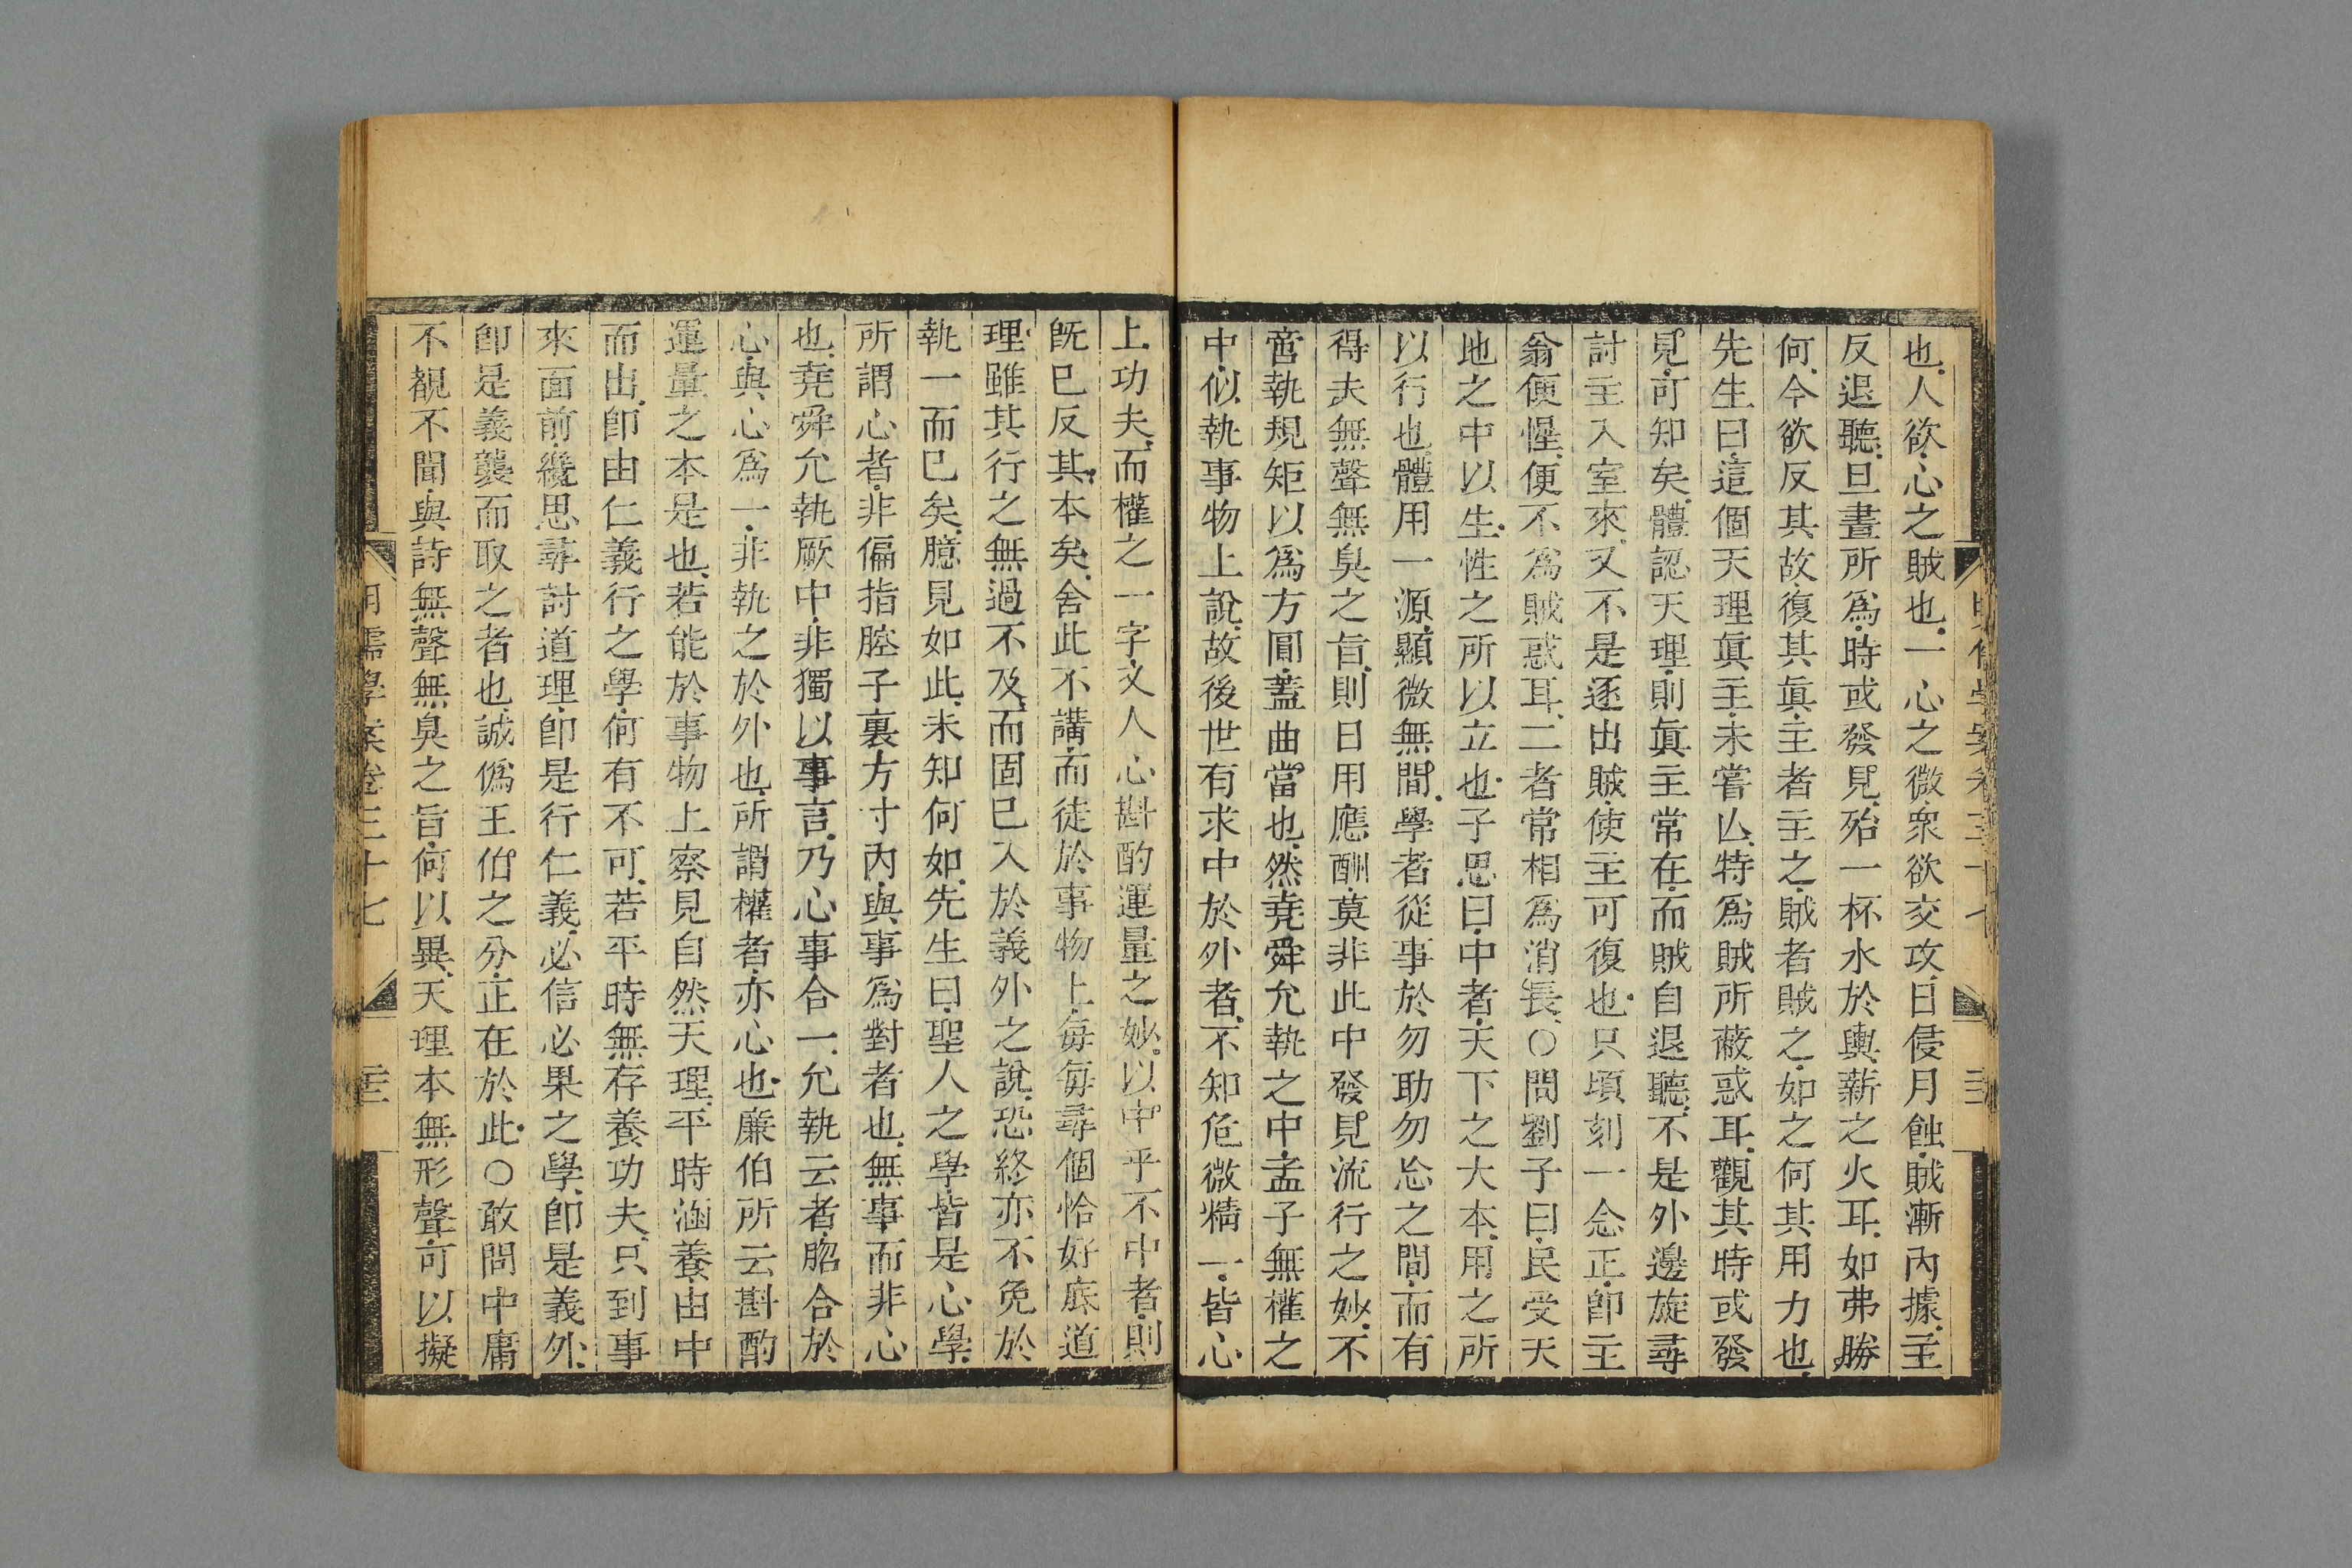 也人欲心之賊也一心之微衆欲交攻日侵月蝕賊漸內據主
反退聽旦晝所爲時或發見殆一杯水於輿薪之火耳如弗勝
何今欲反其故復其眞主者主之賊者賊之如之何其用力也
先生曰這個天理眞主未嘗亾特爲賊所蔽惑耳觀其時或發
見可知矣體認天理則眞主常在而賊自退聽不是外邊旋尋
討主入室來又不是逐出賊使主可復也只頃刻一念正卽主
翁便惺便不爲賊惑耳二者常相爲消長○問劉子曰民受天
地之中以生性之所以立也子思曰中者天下之大本用之所
以行也體用一源顯微無間學者從事於勿助勿忘之間而有
得夫無聲無臭之旨則日用應酬莫非此中發見流行之妙不
啻執規矩以爲方圓蓋曲當也然堯舜允執之中孟子無權之
中似執事物上說故後世有求中於外者不知危微精一皆心
上功夫而權之一字又人心斟酌運量之妙以中乎不中者則
旣已反其本矣舍此不講而徒於事物上每每尋個恰好底道
理雖其行之無過不及而固已入於義外之說恐終亦不免於
執一而已矣臆見如此未知何如先生曰聖人之學皆是心學
所謂心者非偏指腔子裏方寸內與事爲對者也無事而非心
也堯舜允執厥中非獨以事言乃心事合一允執云者脗合於
心與心爲一非執之於外也所謂權者亦心也廉伯所云斟酌
運量之本是也若能於事物上察見自然天理平時涵養由中
而出卽由仁義行之學何有不可若平時無存養功夫只到事
來面前纔思尋討道理卽是行仁義必信必果之學卽是義外
卽是義襲而取之者也誠僞王伯之分正在於此○敢問中庸
不覩不聞與詩無聲無臭之旨何以異天理本無形聲可以擬
明儒學案卷三十七